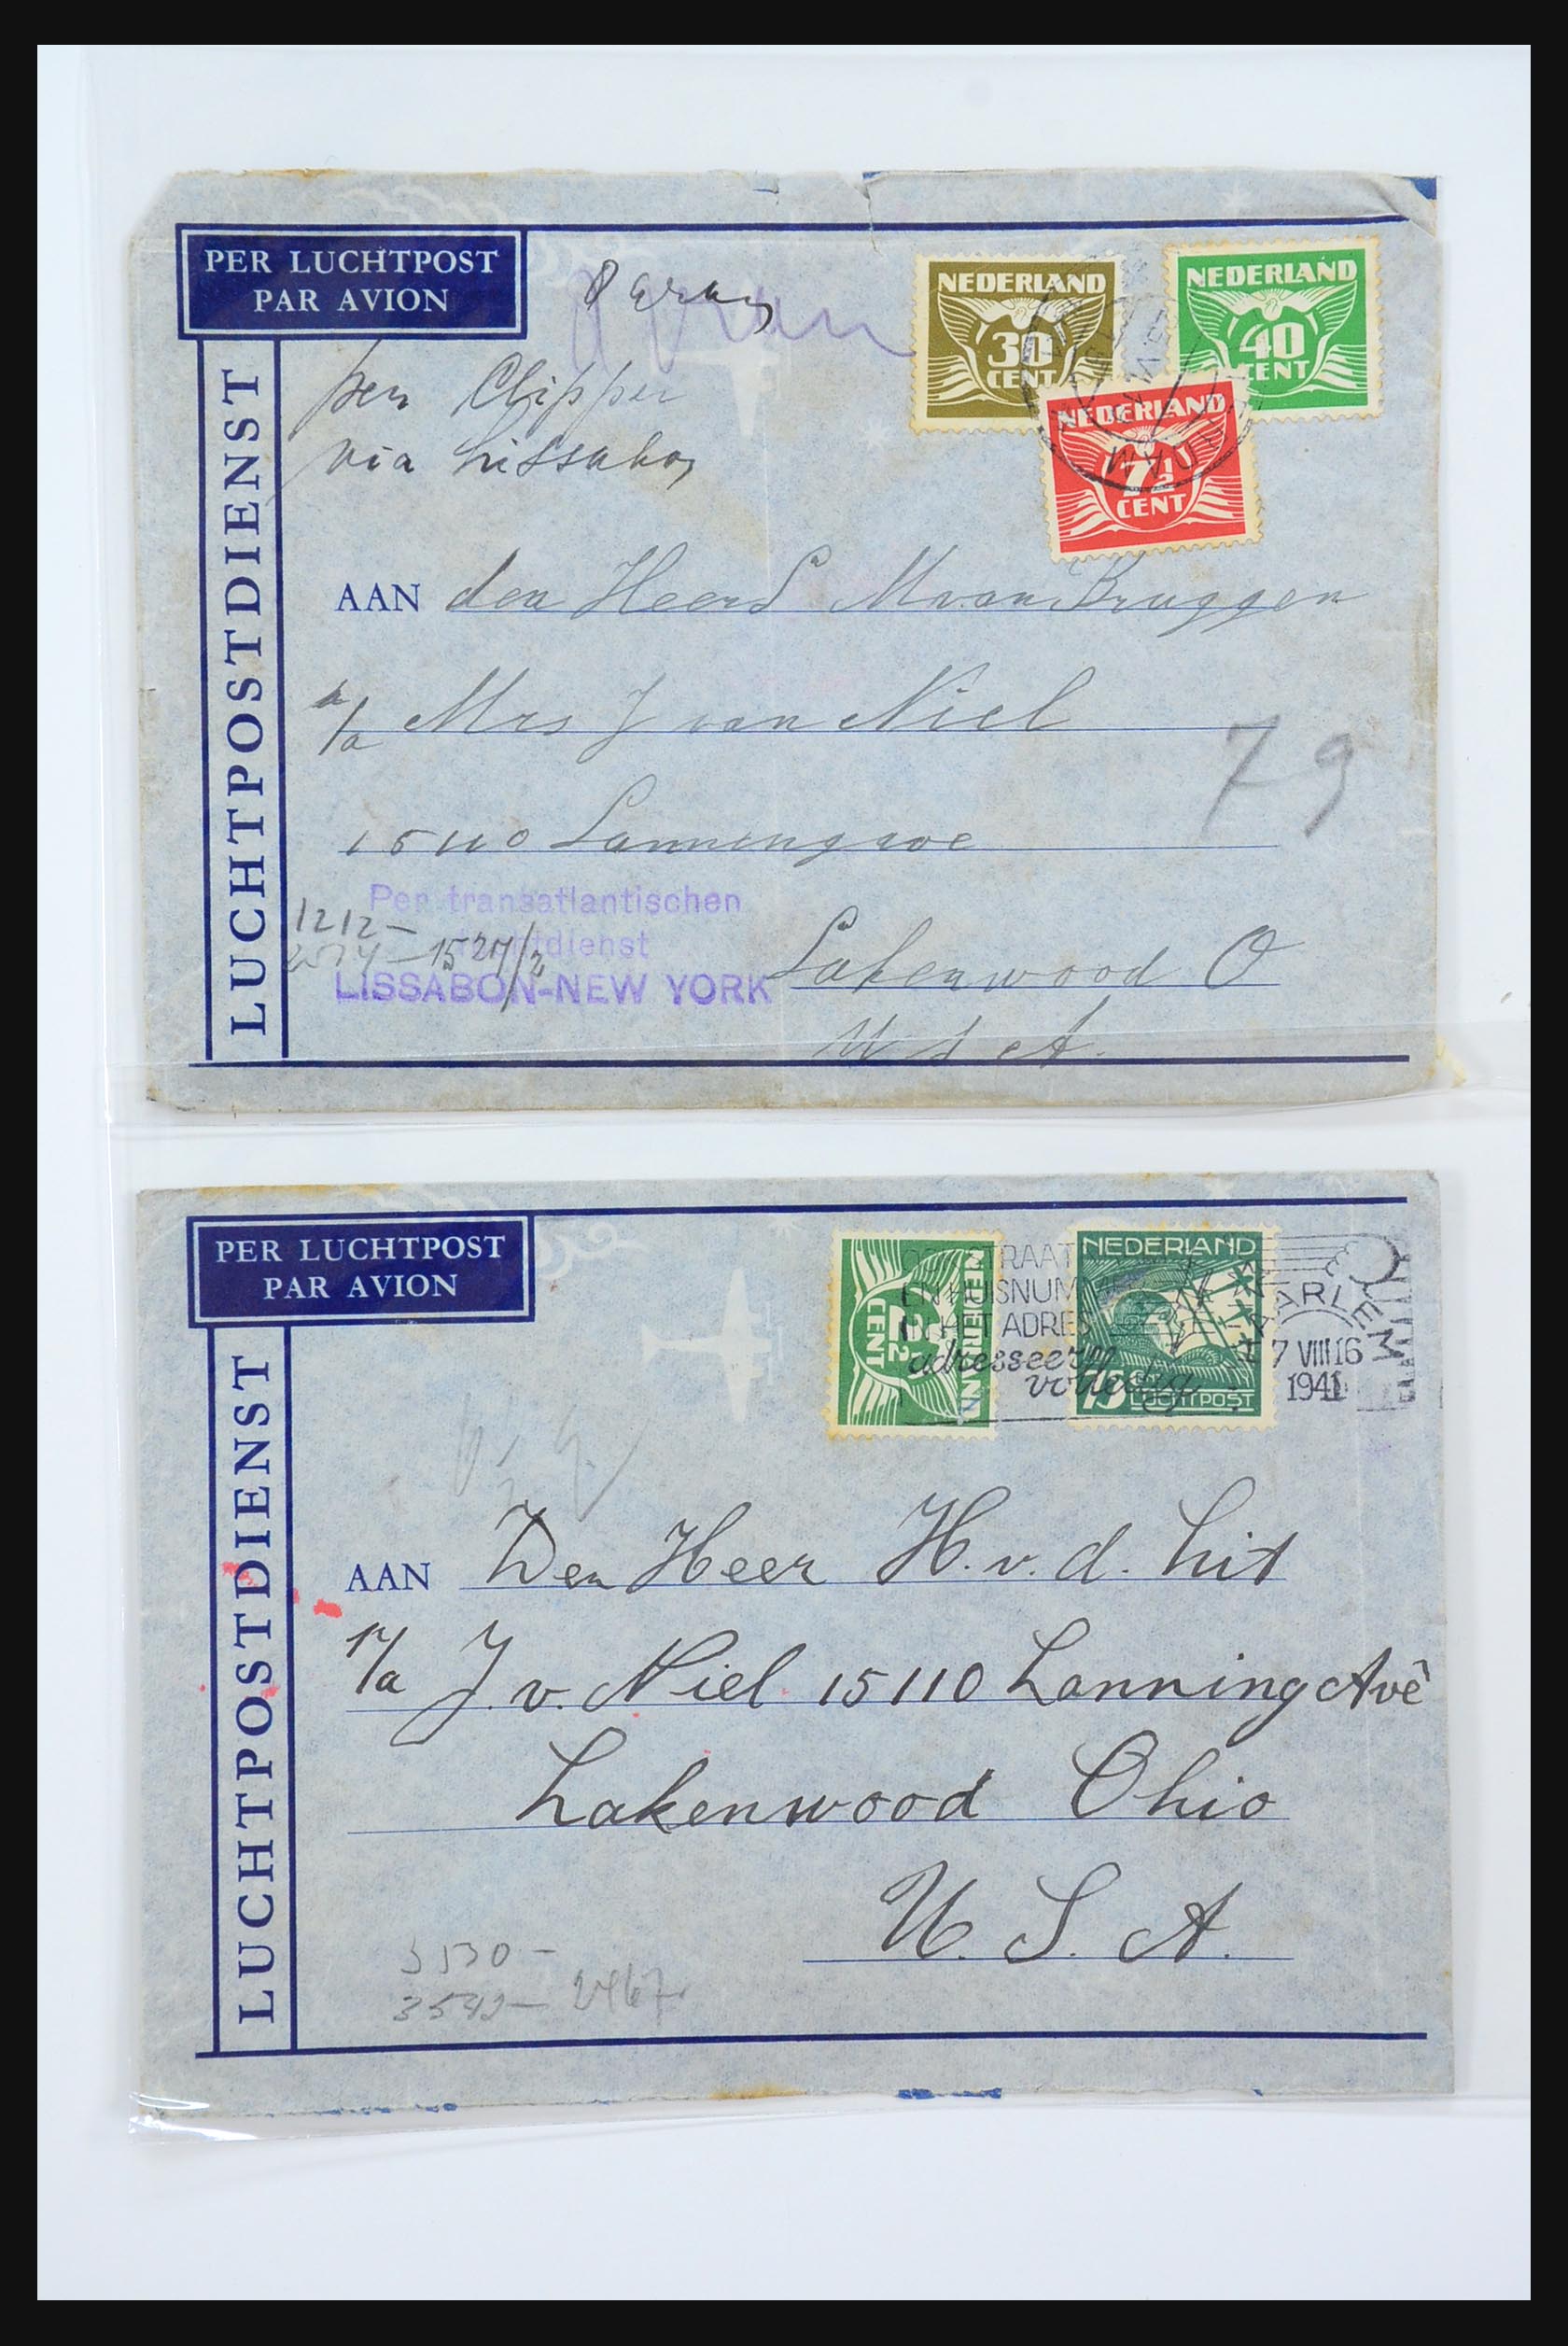 PER LUCHTPOST
PAR AVION
LUCHTPOSTDIENST
per Clipper
via Lissabon
NEDERLAND
30
CENT
NEDERLAND
40
CENT
NEDERLAND
7½
CENT
AAN den Heer S M van Bruggen
p/a Mrs J van Niel
15110 Lanningave
79
Per transatlantischen
LISSABON-NEW YORK
1212-
1527/2
Lakenwood O
U S A.
PER LUCHTPOST
PAR AVION
LUCHTPOSTDIENST
NEDERLAND
2½
CENT
NEDERLAND
75
LUCHTPOST
STRAAT
EN HUISNUMMER
IN HET ADRES
adresseer
volledig
HAARLEM
7 VIII 16
1941
AAN Den Heer H. v. d. Lit
p/a J. v. Niel 15110 Lanning Avè
Lakenwood Ohio
U. S. A.
3530 -
3542 - 2467